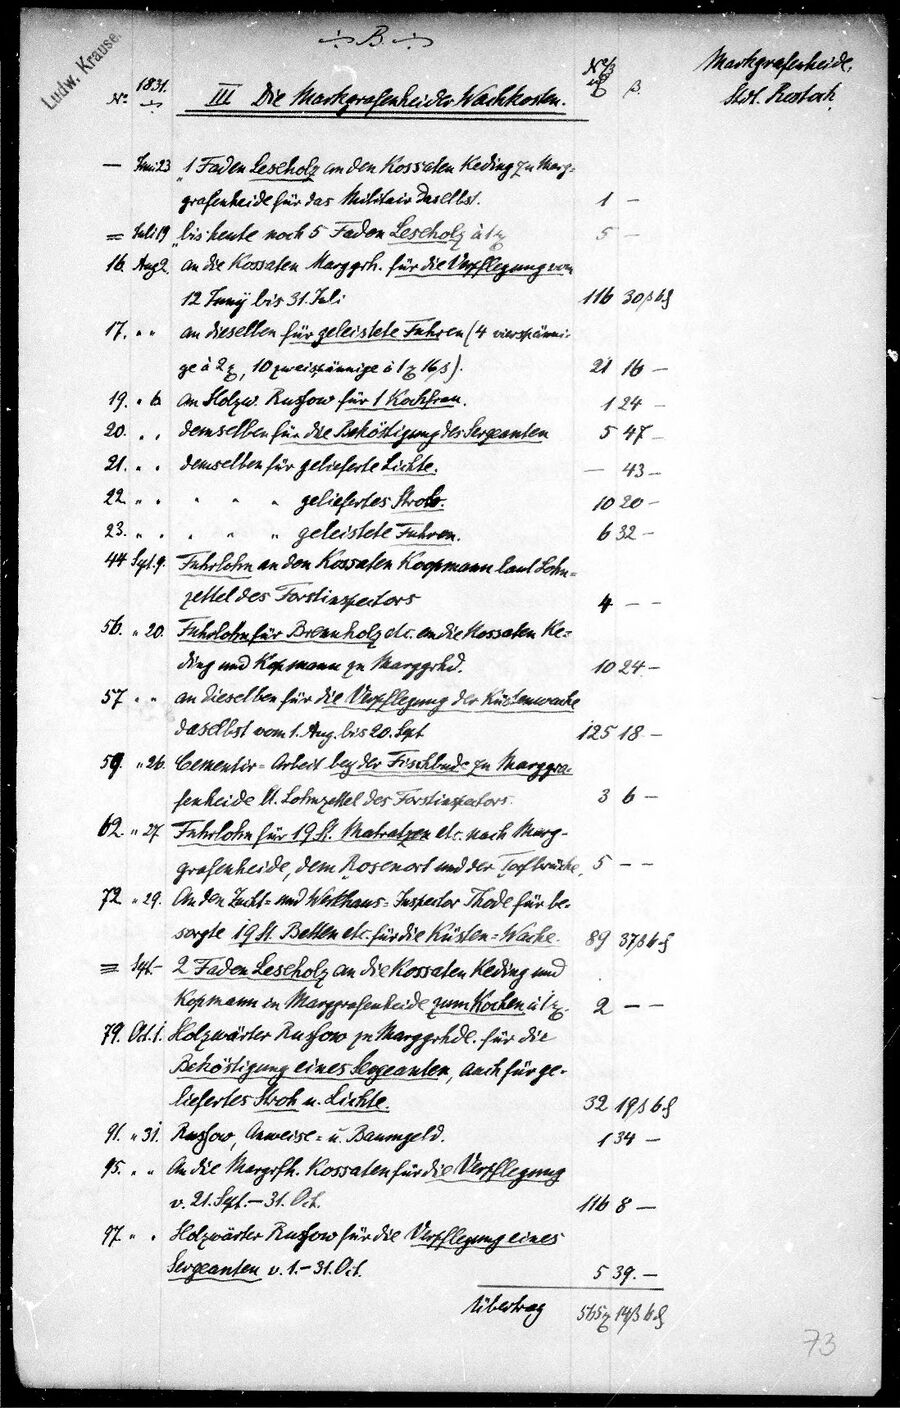 ÷ B. ÷
Ludw. Krause.
Markgrafenheide,
Stdt. Rostock.
No. 1831. III Die Markgrafenheider Wachkosten. N 2/3 ß.
— Juni 23 1 Faden Leseholz an den Kossaten Keding zu Marg=
grafenheide für das Militair daselbst. 1 —
= Juli 19 bis heute noch 5 Faden Leseholz à 1 5 —
16. Aug 2. an die Kossaten Marggrh. für die Verpflegung vom
12 Juny bis 31. Juli 116 30 ß 6 ₰
17. " " an dieselben für geleistete Fuhren (4 vierspänni-
ge à 2, 10 zweispännige à 1 16 ß). 21 16 —
19. " 6 An Holzw. Russow für 1 Kochfrau. 1 24 —
20. " " demselben für die Beköstigung des Sergeanten 5 47 —
21. " " demselben für gelieferte Lichte. — 43 —
22. " " " " " geliefertes Stroh. 10 20 —
23. " " " " " geleistete Fuhren. 6 32 —
44 Spt. 9. Fuhrlohn an den Kossaten Koopmann laut Lohn=
zettel des Forstinspectors 4 — —
56. " 20. Fuhrlohn für Brennholz etc. an die Kossaten Ke=
ding und Kopmann zu Marggrhd. 10 24 —
57 " " an dieselben für die Verpflegung der Küstenwache
daselbst vom 1. Aug. bis 20. Spt 125 18 —
59. " 26. Cementir=Arbeit bey der Fischbude zu Marggra-
fenheide lt. Lohnzettel des Forstinspectors. 3 6 —
62. " 27 Fuhrlohn für 19 St. Matratzen etc. nach Marg-
grafenheide, dem Rosenort und der Torfbrücke, 5 — —
72. " 29. An den Zucht= und Werkhaus=Inspector Thode für be-
sorgte 19 St. Betten etc. für die Küsten=Wache. 89 37 ß 6 ₰
= Spt. — 2 Faden Leseholz an die Kossaten Keding und
Kopmann in Marggrafenheide zum Kochen à 1. 2 — —
79. Oct. 1. Holzwärter Russow zu Marggrhde. für die
Beköstigung eines Sergeanten, auch für ge-
liefertes Stroh u. Lichte. 32 19 ß 6 ₰
91. " 31. Russow, Anweise= u. Baumgeld. 1 34 —
95. " " An die Margrfh. Kossaten für die Verpflegung
v. 21. Spt. — 31. Oct. 116 8 —
97. " " Holzwärter Russow für die Verpflegung eines
Sergeanten v. 1. – 31. Oct. 5 39. —
Übertrag 565 14 ß 6 ₰
73